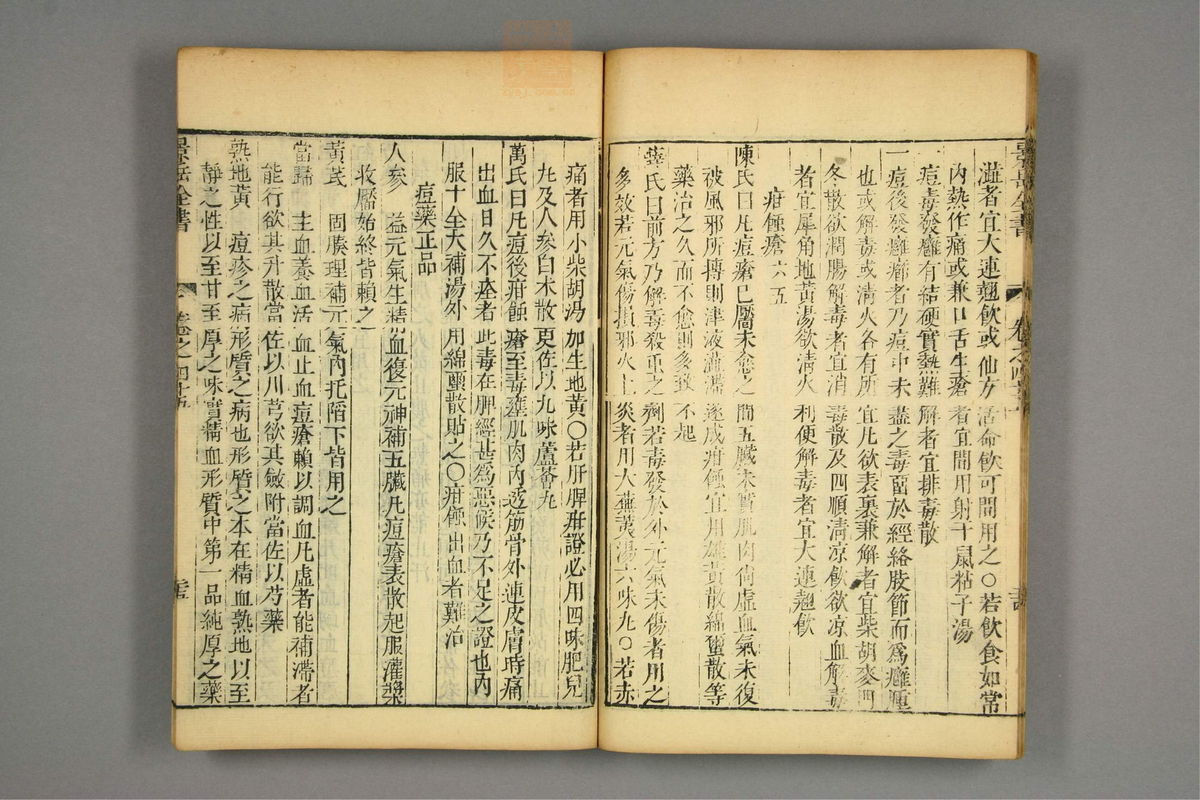 澁者宜大連翹飲或仙方活命飲可間用之○若飲食如常
內熱作痛或兼口舌生瘡者宜間用射干鼠粘子湯
痘毒發癰有結硬實熱難解者宜排毒散
一痘後發癰癤者乃痘中未盡之毒留於經絡肢節而爲癰腫
也或解毒或清火各有所宜凡欲表裏兼解者宜柴胡麥門
冬散欲潤腸解毒者宜消毒散及四順清凉飲欲凉血解毒
者宜犀角地黃湯欲清火利便解毒者宜大連翹飲
痘疳蝕瘡六五
陳氏曰凡痘瘡已靨未愈之間五臟未實肌肉尚虛血氣未復
被風邪所搏則津液澁滯遂成疳蝕宜用雄黃散綿蠒散等
藥治之久而不愈則多致不起
薛氏曰前方乃解毒殺虫之劑若毒發於外元氣未傷者用之
多效若元氣傷損邪火上炎者用大蕪荑湯六味丸○若赤
痛者用小柴胡湯加生地黃○若肝脾疳證必用四味肥兒
丸及人參白术散更佐以九味蘆薈丸
萬氏曰凡痘後疳蝕瘡至毒壅肌肉內透筋骨外連皮膚時痛
出血日久不痊者此毒在脾經甚爲惡候乃不足之證也內
服十全大補湯外用綿蠒散貼之○疳蝕出血者難治
痘藥正品
人參 益元氣生精血復元神補五臟凡痘瘡表散起服灌漿
收靨始終皆賴之
黃芪 固腠理補元氣內托陷下皆用之
當歸 主血養血活血止血痘瘡賴以調血凡虛者能補滯者
能行欲其升散當佐以川芎欲其斂附當佐以芍藥
熟地黃 痘疹之病形質之病也形質之本在精血熟地以至
靜之性以至甘至厚之味實精血形質中第一品純厚之藥
景岳全書
卷之四十五